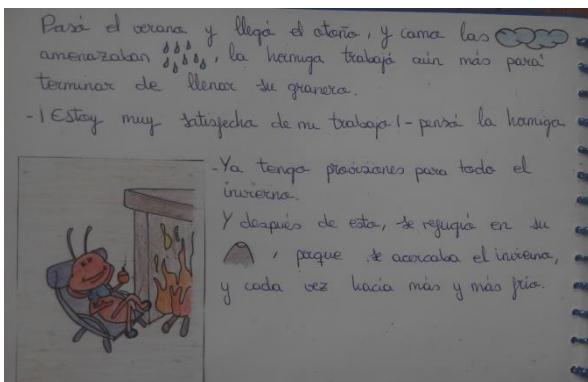 Pasó el verano y llegó el otoño, y como las
amenazaban , la hormiga trabajó aún más para
terminar de llenar su granero.
-¡Estoy muy satisfecha de mi trabajo!- pensó la hormiga
-Ya tengo provisiones para todo el
invierno.
Y después de esto, se refugió en su
, porque se acercaba el invierno,
y cada vez hacía más y más frío.